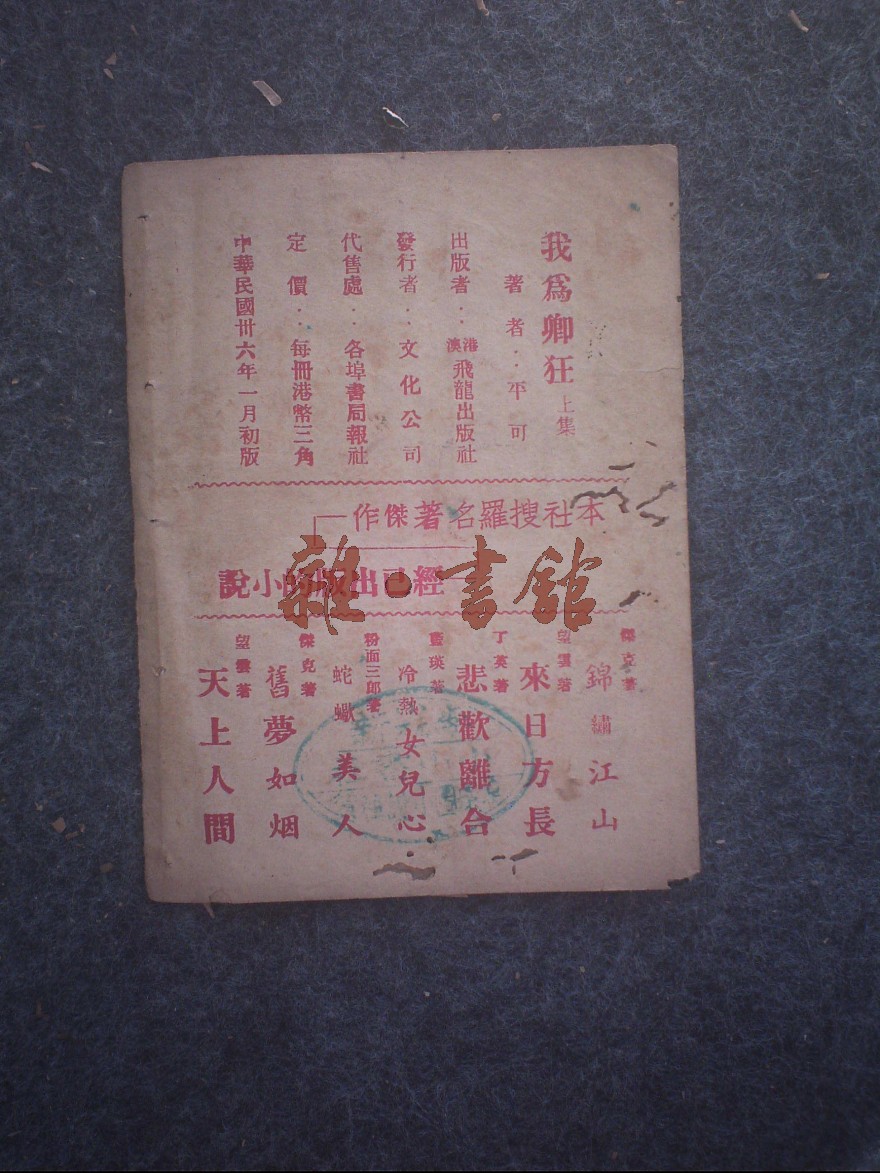 我為卿狂 上集
著者：平可
出版者：港澳飛龍出版社
發行者：文化公司
代售處：各埠書局報社
定價：每冊港幣三角
中華民國卅六年一月初版
本社搜羅名著傑作
經已出版的小說
傑克著 錦繡江山
望雲著 來日方長
丁英著 悲歡離合
瑛著 冷熱女兒心
粉面三郎著 蛇蠍美人
傑克著 舊夢如烟
望雲著 天上人間
雜·書館